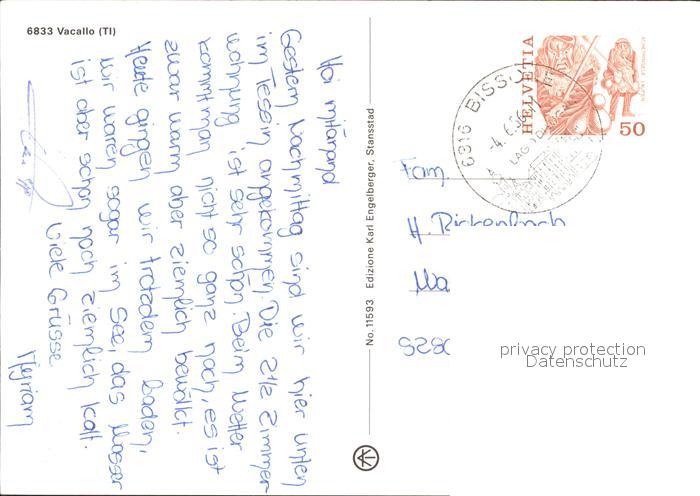 6833 Vacallo (TI)
Hoi mitänand
Gestern Nachmittag sind wir hier unten
im Tessin angekommen. Die 2½ Zimmer-
wohnung ist sehr schön. Beim Wetter
kommt man nicht so ganz nach, es ist
zwar warm aber ziemlich bewölkt.
Heute gingen wir trotzdem baden,
wir waren sogar im See, das Wasser
ist aber schon noch ziemlich kalt.
Viele Grüsse
Myriam
No. 11593 Edizione Karl Engelberger, Stansstad
HELVETIA
50
6816 BISSO
LAGO
Fam.
H. Rickenbach
Wa
privacy protection
Datenschutz